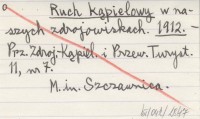 Ruch kąpielowy w na-
szych zdrojowiskach. 1912.-
Prz. Zdroj-Kąpiel. i Przew. Turyst.
11, nr 7.
M.in. Szczawnica.